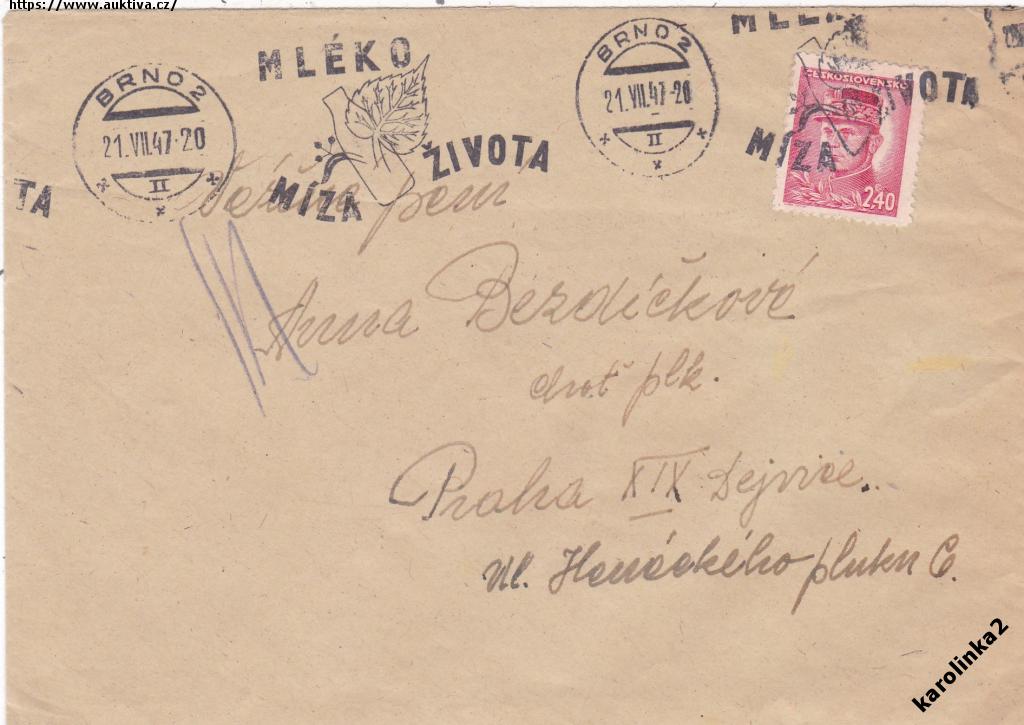 https://www.auktiva.cz/
BRNO 2
21.VII.47-20
II
MLÉKO
MÍZA
ŽIVOTA
BRNO 2
21.VII.47-20
II
MLÉ
MÍZA
ŽIVOTA
ČESKOSLOVENSKO
2.40
TA
paní
Anna Bezdíčková
plk.
Praha XIX Dejvice.
Ul. pluku 6.
karolinka2